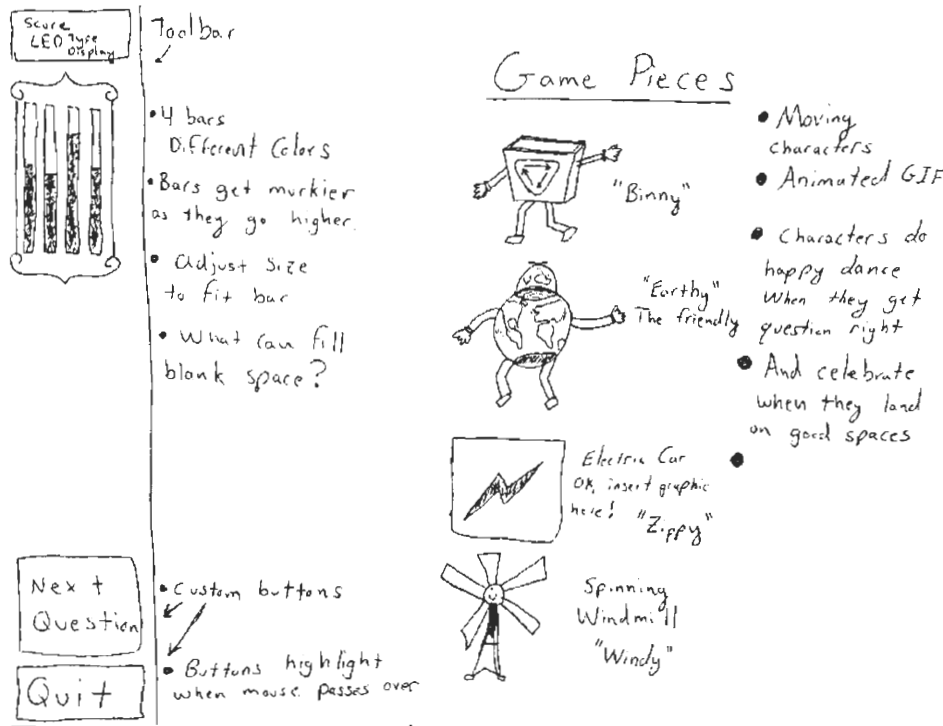 Score
LED Type
Display
Toolbar
• 4 bars
Different Colors
• Bars get murkier
as they go higher.
• Adjust Size
to fit bar
• What can fill
blank space?
Next
Question
Quit
• Custom buttons
• Buttons highlight
when mouse passes over
Game Pieces
"Binny"
UCS
"Earthy"
The friendly
Electric Car
OK, insert graphic
here! "Zippy"
Spinning
Windmill
"Windy"
• Moving
characters
• Animated GIF
• Characters do
happy dance
When they get
question right
• And celebrate
when they land
on good spaces
•